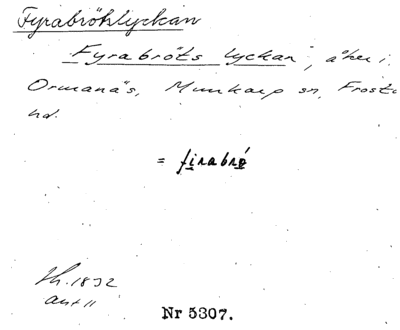 Fyrabröhlyckan
Fyrabröts lyckan, åker i
Ormanäs, Munkarp sn, Frosta
hd.
= firabrö
1832
Nr 5307.